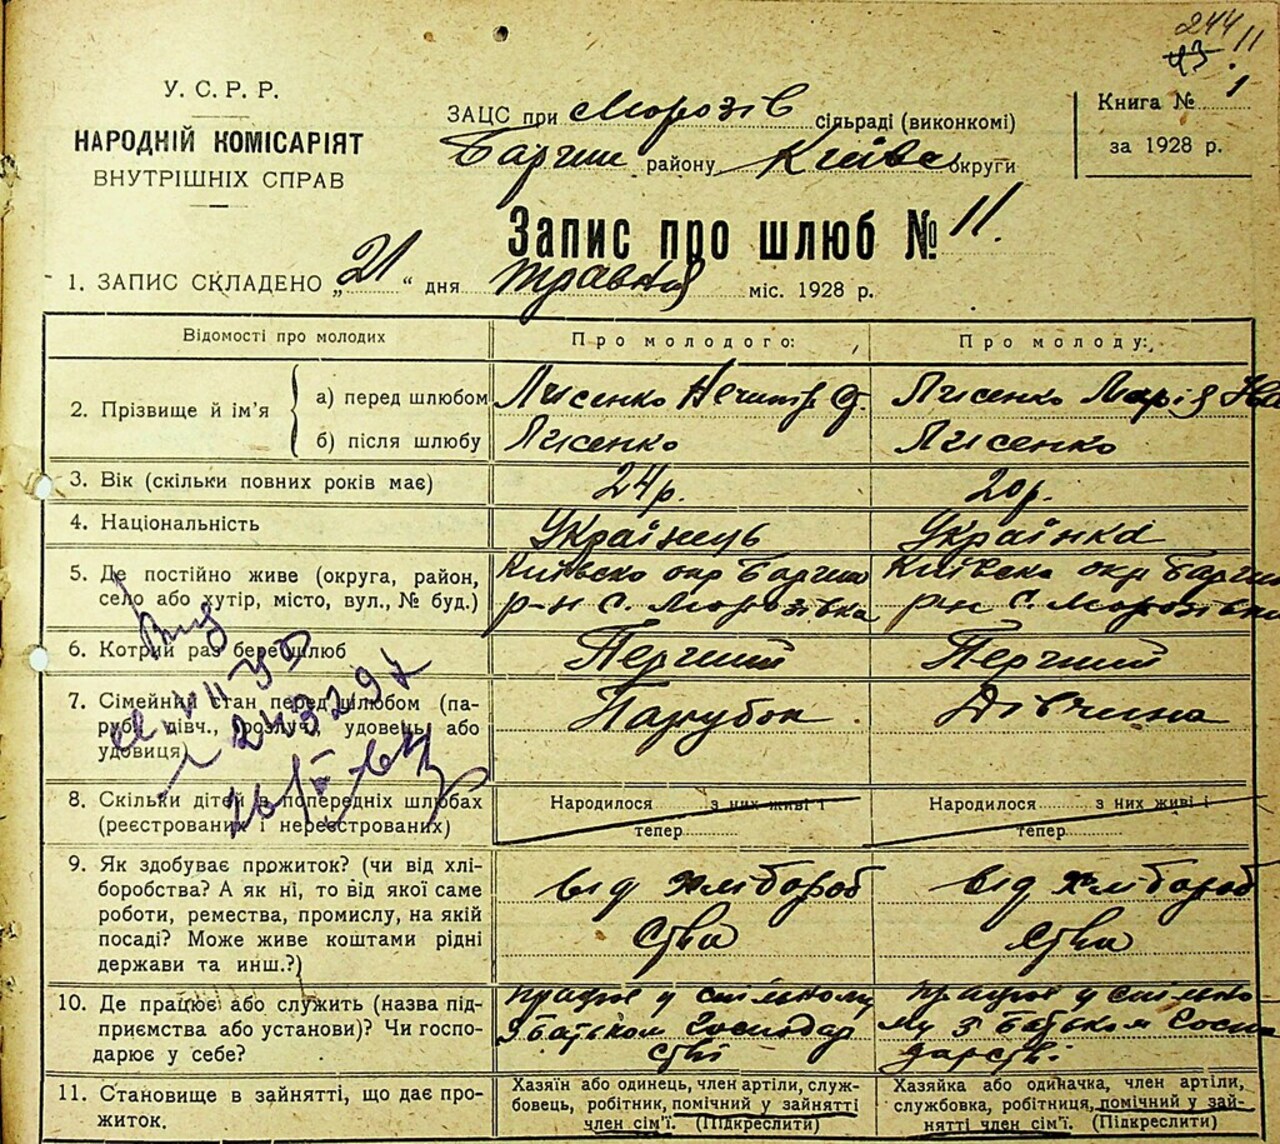 244
43
11
У. С. Р. Р.
НАРОДНІЙ КОМІСАРІЯТ
ВНУТРІШНІХ СПРАВ
ЗАЦС при Морозів сільраді (виконкомі)
Бариш району Київс округи
Книга № 1
за 1928 р.
Запис про шлюб № 11.
1. ЗАПИС СКЛАДЕНО „21“ дня травня міс. 1928 р.
Відомості про молодих
Про молодого:
Про молоду:
2. Прізвище й ім'я
а) перед шлюбом
Лисенко
Лисенко Марія
б) після шлюбу
Лисенко
Лисенко
3. Вік (скільки повних років має)
24 р.
20 р.
4. Національність
Українець
Українка
5. Де постійно живе (округа, район,
село або хутір, місто, вул., № буд.)
Київско окр Бариш
р-н С. Морозівка
Київско окр Бариш
р-н С. Морозівка
6. Котрий раз бере шлюб
Перший
Перший
7. Сімейний стан перед шлюбом (па-
рубок, дівч., розлуч., удовець або
удовиця)
Парубок
Дівчина
8. Скільки дітей в попередніх шлюбах
(реєстрованих і нереєстрованих)
Народилося з них живі і
тепер
Народилося з них живі і
тепер
9. Як здобуває прожиток? (чи від хлі-
боробства? А як ні, то від якої саме
роботи, ремества, промислу, на якій
посаді? Може живе коштами рідні
держави та инш.?)
від хлібороб
ства
від хлібороб
ства
10. Де працює або служить (назва під-
приємства або установи)? Чи госпо-
дарює у себе?
працює у спільному
з батьком господар
стві
працює у спільно
му з батьком госпо
дарстві
11. Становище в зайнятті, що дає про-
житок.
Хазяїн або одинець, член артіли, служ-
бовець, робітник, помічний у зайнятті
член сім'ї. (Підкреслити)
Хазяйка або одиначка, член артіли,
службовка, робітниця, помічний у зай-
нятті член сім'ї. (Підкреслити)